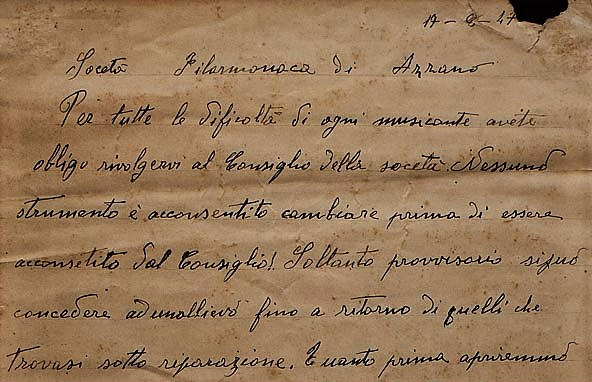 19 - 2 - 47
Soceta Filarmonaca di Azzano
Per tutte le dificoltà di ogni musicante avete
obligo rivolgervi al Consiglio della società. Nessuno
strumento è acconsentito cambiare prima di essere
acconsetito dal Consiglio! Soltanto provvisorio sipuó
concedere adunallievo fino a ritorno di quelli che
trovasi sotto riparazione. Quanto prima apriremmo